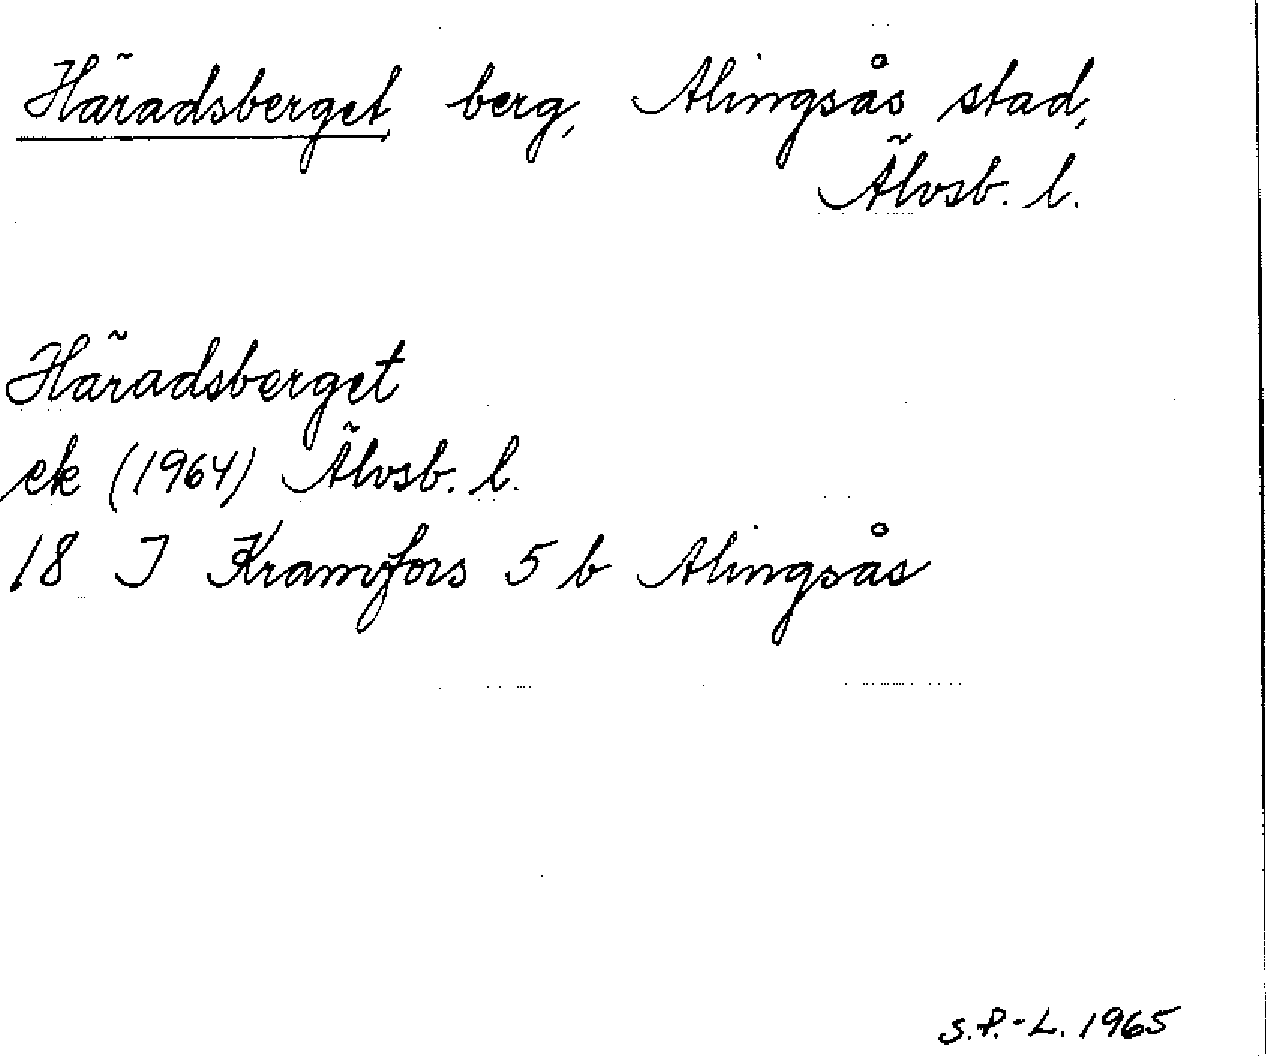 Häradsberget berg, Alingsås stad,
Älvsb. l.
Häradsberget
ek (1964) Älvsb. l.
18 J Kramfors 5 b Alingsås
S.P.-L. 1965